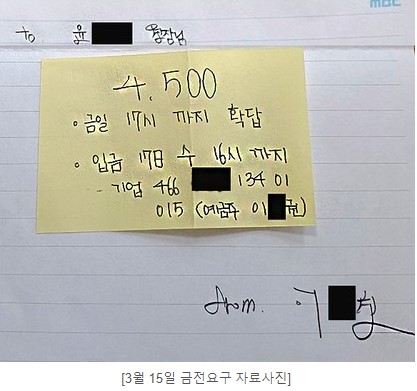 mbc
to 윤
4.500
◦ 금일 17시 까지 확답
◦ 입금 17日 수 16시 까지
- 기업 466 134 01
015 (예금주 이 권)
from. 이
[3월 15일 금전요구 자료사진]